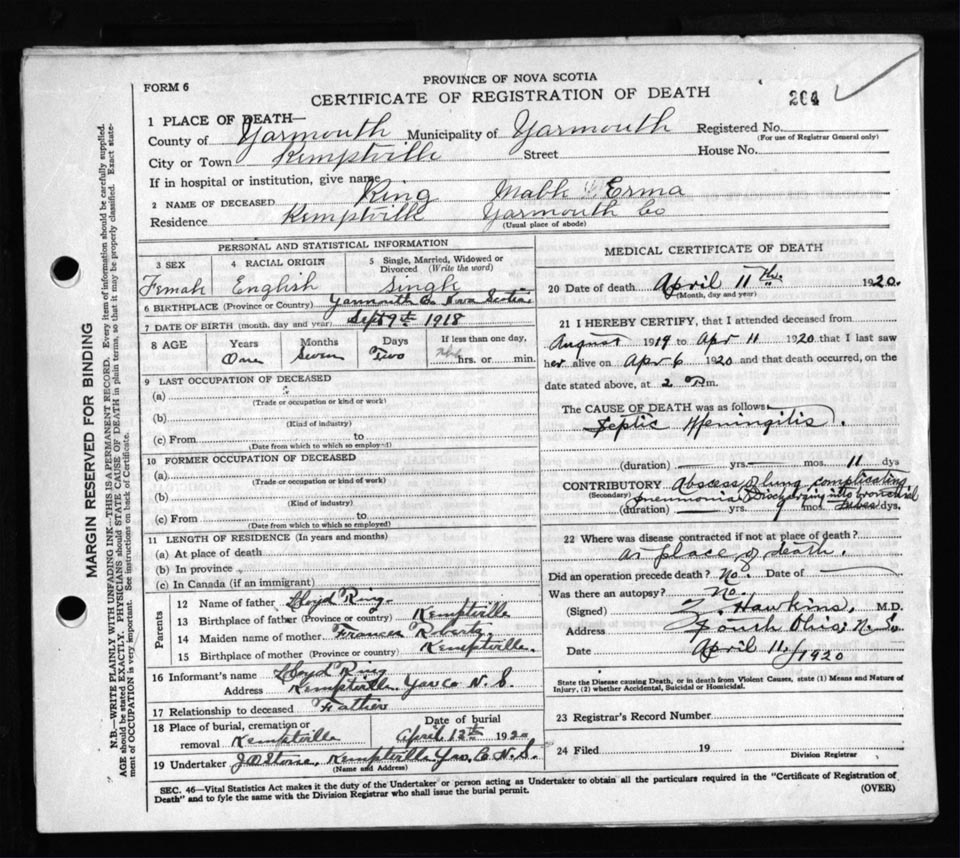 PROVINCE OF NOVA SCOTIA
FORM 6
CERTIFICATE OF REGISTRATION OF DEATH
264
1 PLACE OF DEATH—
County of Yarmouth Municipality of Yarmouth Registered No.
(For use of Registrar General only)
City or Town Kemptville Street House No.
If in hospital or institution, give name
2 NAME OF DECEASED Ring Erma
Residence Kemptville Yarmouth Co
(Usual place of abode)
PERSONAL AND STATISTICAL INFORMATION
3 SEX
Female
4 RACIAL ORIGIN
English
5 Single, Married, Widowed or Divorced (Write the word)
Single
6 BIRTHPLACE (Province or Country) Yarmouth Co Nova Scotia
7 DATE OF BIRTH (month, day and year) Sept 9th 1918
8 AGE Years Months Days If less than one day,
One Seven Two hrs. or min.
9 LAST OCCUPATION OF DECEASED
(a)
(Trade or occupation or kind or work)
(b)
(Kind of industry)
(c) From to
(Date from which to which so employed)
10 FORMER OCCUPATION OF DECEASED
(a)
(Trade or occupation or kind of work)
(b)
(Kind of industry)
(c) From to
(Date from which to which so employed)
11 LENGTH OF RESIDENCE (In years and months)
(a) At place of death
(b) In province
(c) In Canada (if an immigrant)
Parents
12 Name of father Lloyd Ring.
13 Birthplace of father (Province or country) Kemptville
14 Maiden name of mother Frances
15 Birthplace of mother (Province or country) Kemptville.
16 Informant's name Lloyd Ring
Address Kemptville Yar Co N. S.
17 Relationship to deceased Father
18 Place of burial, cremation or removal Kemptville
Date of burial
April 12th 1920
19 Undertaker Kemptville Yar. Co N. S.
(Name and Address)
MEDICAL CERTIFICATE OF DEATH
20 Date of death April 11th 1920.
(Month, day and year)
21 I HEREBY CERTIFY, that I attended deceased from
August 1919 to Apr 11 1920 that I last saw
her alive on Apr 6 1920 and that death occurred, on the
date stated above, at 2 P.m.
The CAUSE OF DEATH was as follows
Septic Meningitis.
(duration) yrs. mos. 11 dys
CONTRIBUTORY Abscess of lung, complicating
(Secondary) pneumonia, Discharging into bronchial
(duration) yrs. 9 mos. tubes dys.
22 Where was disease contracted if not at place of death?
at place of death.
Did an operation precede death? No. Date of
Was there an autopsy? No.
(Signed) Hawkins, M.D.
Address South Ohio, N. S.
Date April 11, 1920
State the Disease causing Death, or in death from Violent Causes, state (1) Means and Nature of
Injury, (2) whether Accidental, Suicidal or Homicidal.
23 Registrar's Record Number
24 Filed 19
Division Registrar
SEC. 46—Vital Statistics Act makes it the duty of the Undertaker or person acting as Undertaker to obtain all the particulars required in the "Certificate of Registration of
Death" and to fyle the same with the Division Registrar who shall issue the burial permit.
(OVER)
MARGIN RESERVED FOR BINDING
N.B.—WRITE PLAINLY WITH UNFADING INK—THIS IS A PERMANENT RECORD. Every item of information should be carefully supplied.
AGE should be stated EXACTLY. PHYSICIANS should STATE CAUSE OF DEATH in plain terms, so that it may be properly classified. Exact state-
ment of OCCUPATION is very important. See instructions on back of Certificate.